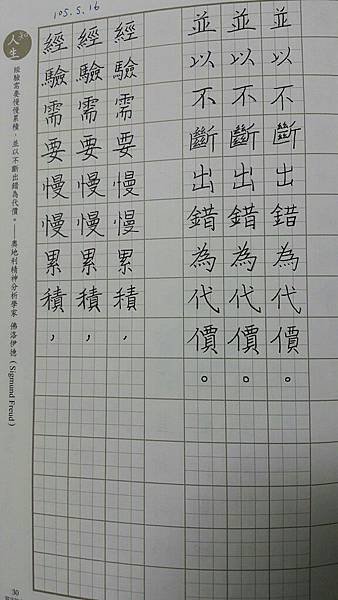 105.5.16
人生
經驗需要慢慢累積，並以不斷出錯為代價。——奧地利精神分析學家 佛洛伊德（Sigmund Freud）
經驗需要慢慢累積，
經驗需要慢慢累積，
經驗需要慢慢累積，
並以不斷出錯為代價。
並以不斷出錯為代價。
並以不斷出錯為代價。
30